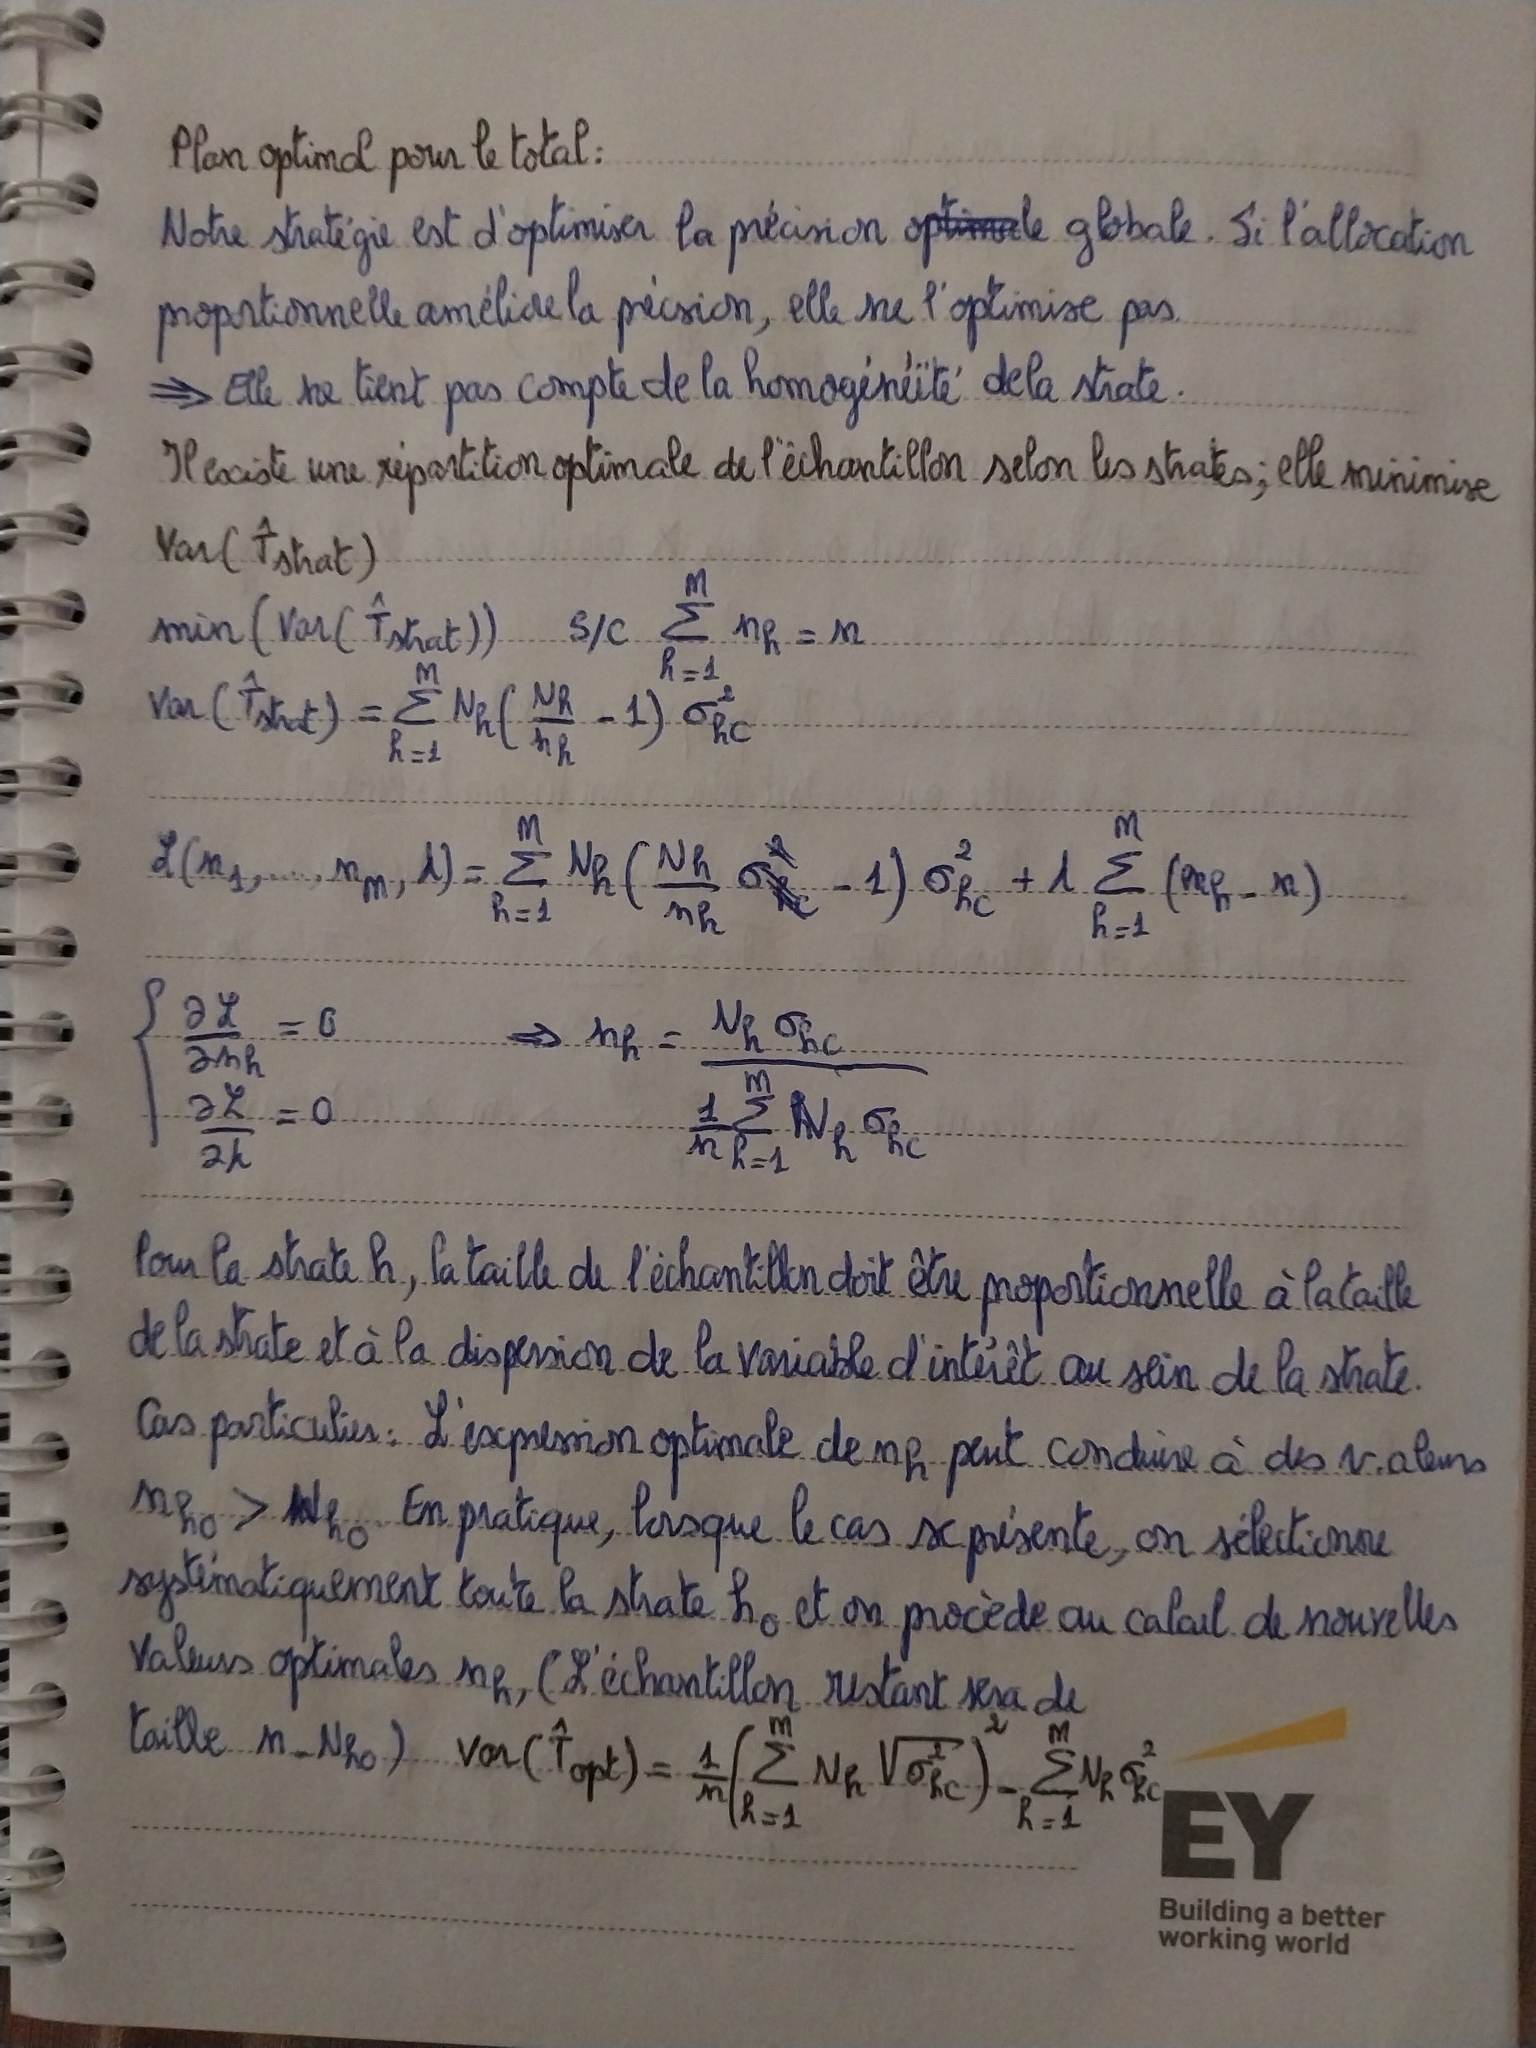 Plan optimal pour le total :
Notre stratégie est d'optimiser la précision globale. Si l'allocation
proportionnelle améliore la précision, elle ne l'optimise pas.
⇒ Elle ne tient pas compte de la homogénéïté de la strate.
Il existe une répartition optimale de l'échantillon selon les strates; elle minimise
Var(T̂_strat)
min(Var(T̂_strat)) S/C ∑_{h=1}^{M} n_h = n
Var(T̂_strat) = ∑_{h=1}^{M} N_h (N_h/n_h - 1) σ²_hc
ℒ(n_1, ..., n_M, λ) = ∑_{h=1}^{M} N_h (N_h/n_h - 1) σ²_hc + λ ∑_{h=1}^{M} (n_h - n)
{ ∂ℒ/∂n_h = 0 ⇒ n_h = N_h σ_hc / (1/n ∑_{h=1}^{M} N_h σ_hc)
∂ℒ/∂λ = 0
Pour la strate h, la taille de l'échantillon doit être proportionnelle à la taille
de la strate et à la dispersion de la variable d'intérêt au sein de la strate.
Cas particulier : L'expression optimale de n_h peut conduire à des valeurs
n_h0 > N_h0. En pratique, lorsque le cas se présente, on sélectionne
systématiquement toute la strate h_0 et on procède au calcul de nouvelles
valeurs optimales n_h, (L'échantillon restant sera de
taille n - N_h0) Var(T̂_opt) = 1/n (∑_{h=1}^{M} N_h √σ²_hc)² - ∑_{h=1}^{M} N_h σ²_hc
EY
Building a better
working world